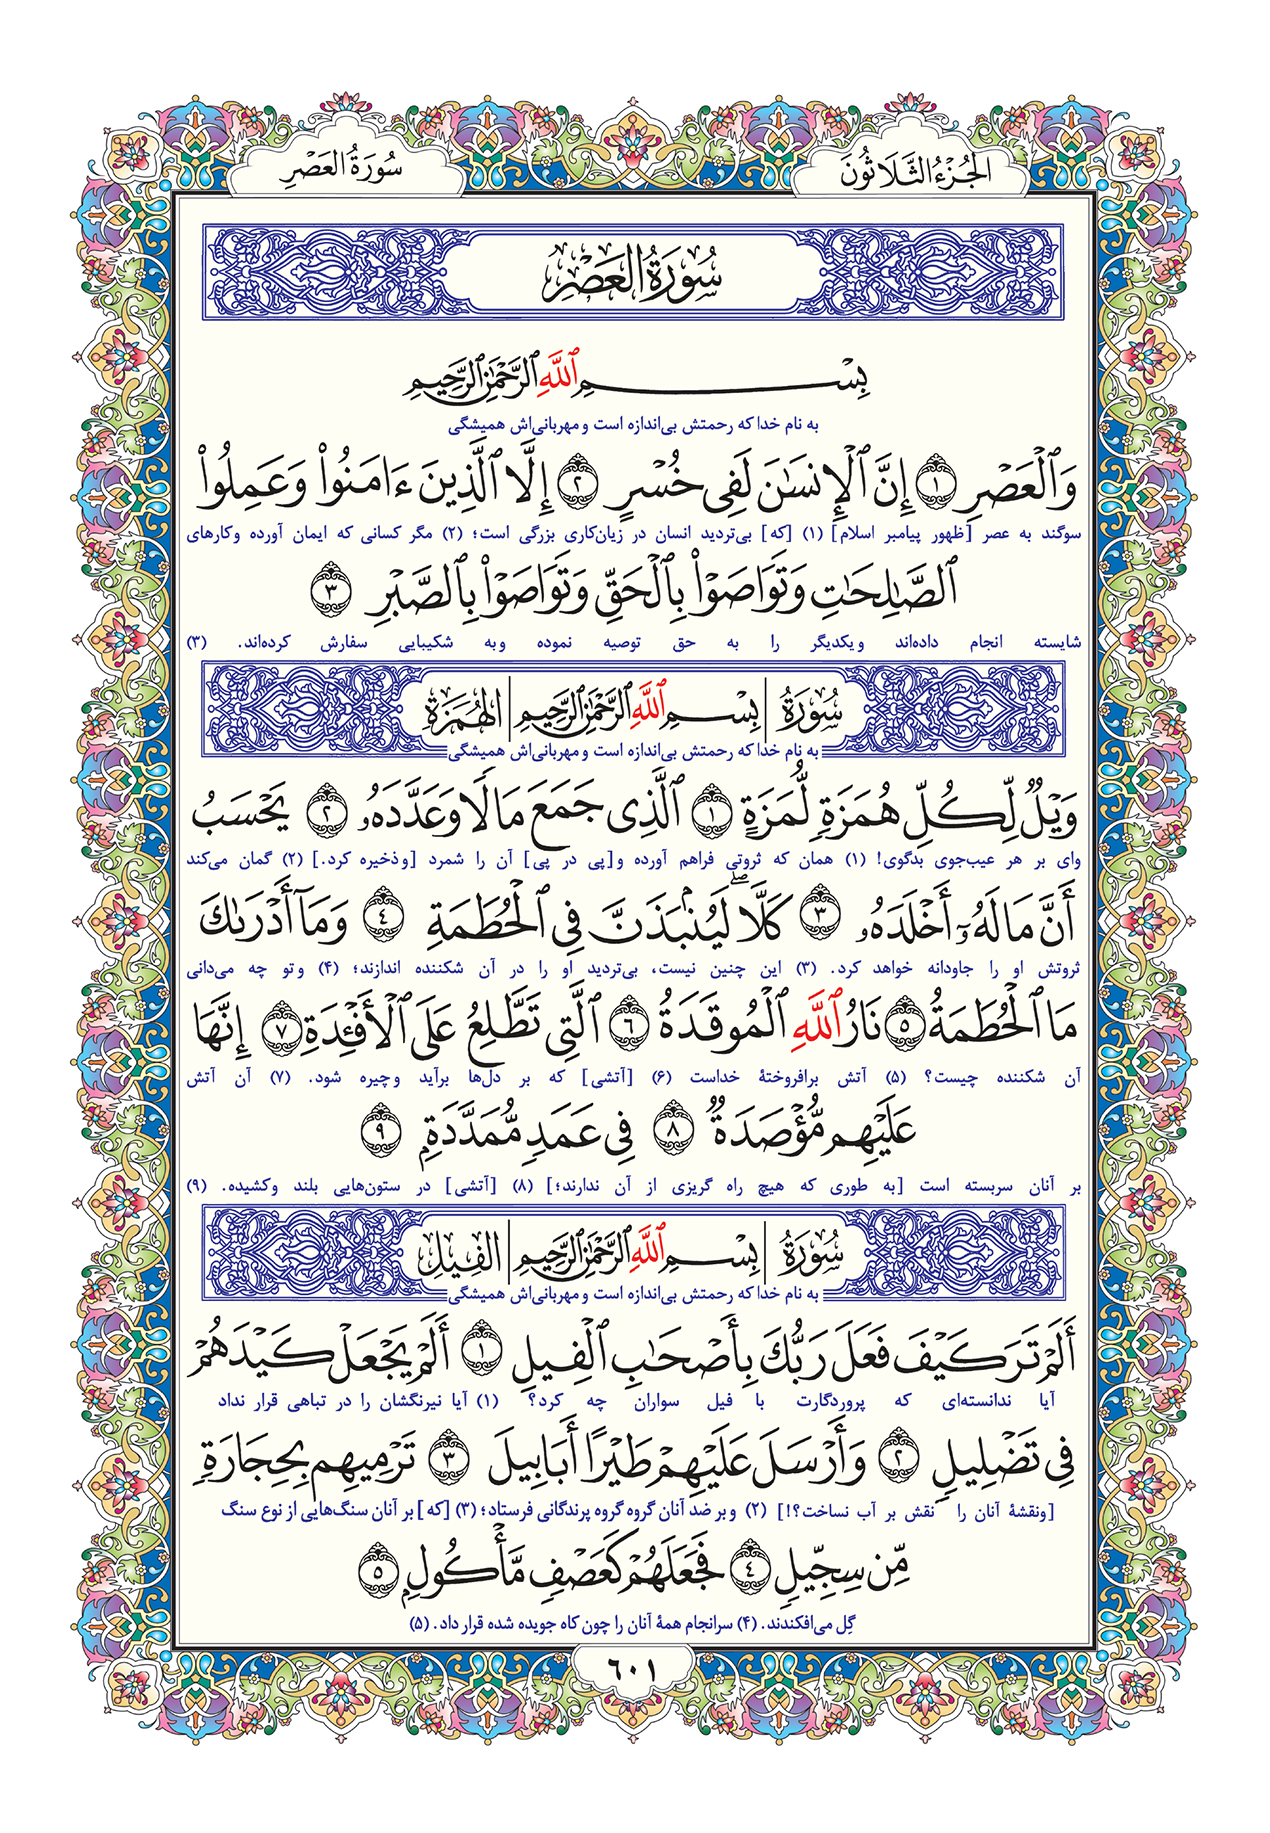 الجُزْءُ الثَّلَاثُونَ
سُورَةُ العَصْرِ
سُورَةُ العَصْرِ
بِسْمِ ٱللَّهِ ٱلرَّحْمَٰنِ ٱلرَّحِيمِ
به نام خدا که رحمتش بی‌اندازه است و مهربانی‌اش همیشگی
وَٱلْعَصْرِ ١ إِنَّ ٱلْإِنسَٰنَ لَفِى خُسْرٍ ٢ إِلَّا ٱلَّذِينَ ءَامَنُوا۟ وَعَمِلُوا۟
سوگند به عصر [ظهور پیامبر اسلام] (۱) [که] بی‌تردید انسان در زیان‌کاری بزرگی است؛ (۲) مگر کسانی که ایمان آورده و کارهای
ٱلصَّٰلِحَٰتِ وَتَوَاصَوْا۟ بِٱلْحَقِّ وَتَوَاصَوْا۟ بِٱلصَّبْرِ ٣
شایسته انجام داده‌اند و یکدیگر را به حق توصیه نموده و به شکیبایی سفارش کرده‌اند. (۳)
سُورَةُ | بِسْمِ ٱللَّهِ ٱلرَّحْمَٰنِ ٱلرَّحِيمِ | الهُمَزَةِ
به نام خدا که رحمتش بی‌اندازه است و مهربانی‌اش همیشگی
وَيْلٌ لِّكُلِّ هُمَزَةٍ لُّمَزَةٍ ١ ٱلَّذِى جَمَعَ مَالًا وَعَدَّدَهُۥ ٢ يَحْسَبُ
وای بر هر عیب‌جوی بدگوی! (۱) همان که ثروتی فراهم آورده و [پی در پی] آن را شمرد [و ذخیره کرد.] (۲) گمان می‌کند
أَنَّ مَالَهُۥٓ أَخْلَدَهُۥ ٣ كَلَّا ۖ لَيُنۢبَذَنَّ فِى ٱلْحُطَمَةِ ٤ وَمَآ أَدْرَىٰكَ
ثروتش او را جاودانه خواهد کرد. (۳) این چنین نیست، بی‌تردید او را در آن شکننده اندازند؛ (۴) و تو چه می‌دانی
مَا ٱلْحُطَمَةُ ٥ نَارُ ٱللَّهِ ٱلْمُوقَدَةُ ٦ ٱلَّتِى تَطَّلِعُ عَلَى ٱلْأَفْـِٔدَةِ ٧ إِنَّهَا
آن شکننده چیست؟ (۵) آتش برافروختهٔ خداست (۶) [آتشی] که بر دل‌ها برآید و چیره شود. (۷) آن آتش
عَلَيْهِم مُّؤْصَدَةٌ ٨ فِى عَمَدٍ مُّمَدَّدَةٍۭ ٩
بر آنان سربسته است [به طوری که هیچ راه گریزی از آن ندارند؛] (۸) [آتشی] در ستون‌هایی بلند و کشیده. (۹)
سُورَةُ | بِسْمِ ٱللَّهِ ٱلرَّحْمَٰنِ ٱلرَّحِيمِ | الفِيلِ
به نام خدا که رحمتش بی‌اندازه است و مهربانی‌اش همیشگی
أَلَمْ تَرَ كَيْفَ فَعَلَ رَبُّكَ بِأَصْحَٰبِ ٱلْفِيلِ ١ أَلَمْ يَجْعَلْ كَيْدَهُمْ
آیا ندانسته‌ای که پروردگارت با فیل سواران چه کرد؟ (۱) آیا نیرنگشان را در تباهی قرار نداد
فِى تَضْلِيلٍ ٢ وَأَرْسَلَ عَلَيْهِمْ طَيْرًا أَبَابِيلَ ٣ تَرْمِيهِم بِحِجَارَةٍ
[و نقشهٔ آنان را نقش بر آب نساخت؟!] (۲) و بر ضد آنان گروه گروه پرندگانی فرستاد؛ (۳) [که] بر آنان سنگ‌هایی از نوع سنگ
مِّن سِجِّيلٍ ٤ فَجَعَلَهُمْ كَعَصْفٍ مَّأْكُولٍۭ ٥
گِل می‌افکندند. (۴) سرانجام همهٔ آنان را چون کاه جویده شده قرار داد. (۵)
٦٠١